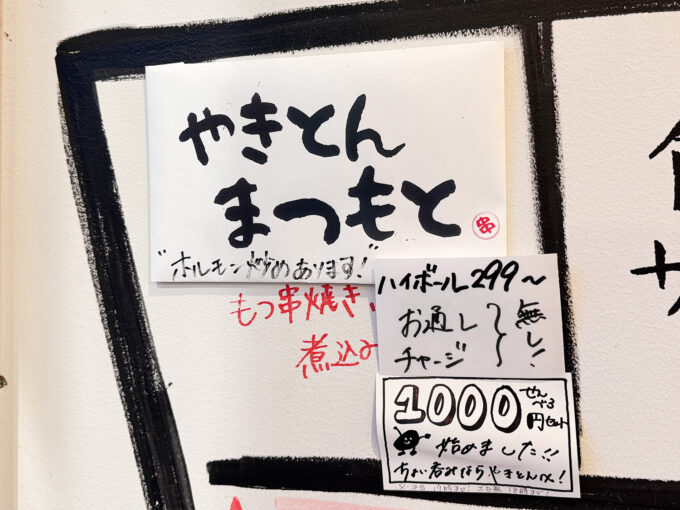 やきとん
まつもと
串
"ホルモン炒めあります!"
もつ串焼き、
煮込み
ハイボール299〜
お通し
チャージ
無し!
1000
せんべろ
円セット
始めました!!
ちょい呑みならやきとん